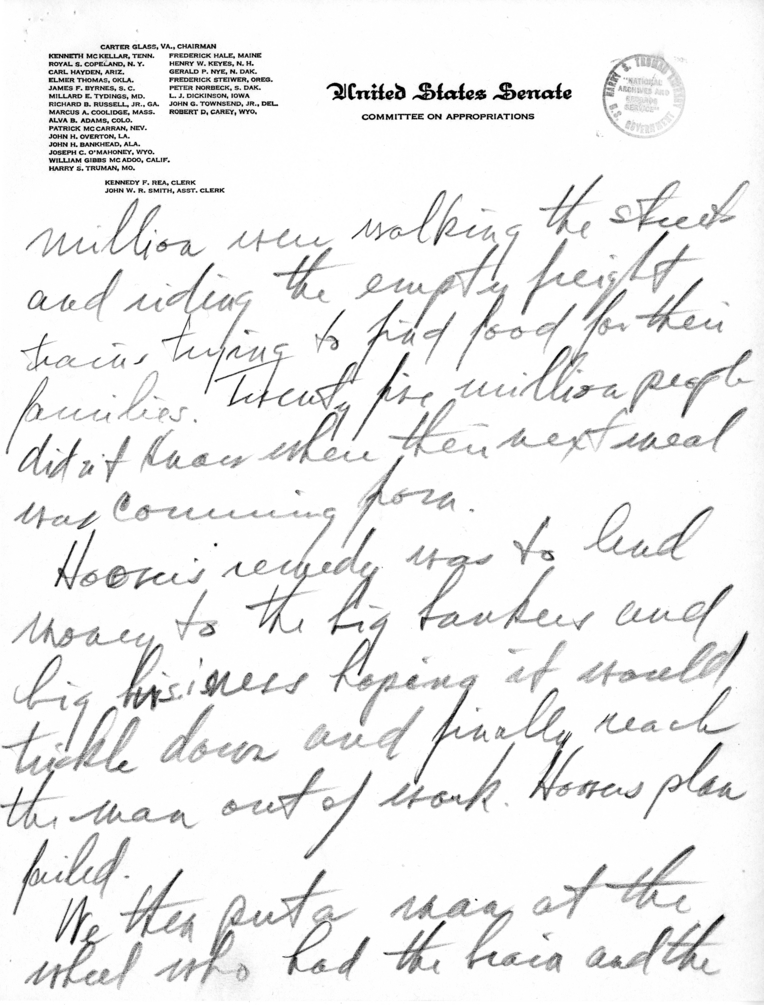 CARTER GLASS, VA., CHAIRMAN
KENNETH MCKELLAR, TENN.
ROYAL S. COPELAND, N. Y.
CARL HAYDEN, ARIZ.
ELMER THOMAS, OKLA.
JAMES F. BYRNES, S. C.
MILLARD E. TYDINGS, MD.
RICHARD B. RUSSELL, JR., GA.
MARCUS A. COOLIDGE, MASS.
ALVA B. ADAMS, COLO.
PATRICK MCCARRAN, NEV.
JOHN H. OVERTON, LA.
JOHN H. BANKHEAD, ALA.
JOSEPH C. O'MAHONEY, WYO.
WILLIAM GIBBS MCADOO, CALIF.
HARRY S. TRUMAN, MO.
FREDERICK HALE, MAINE
HENRY W. KEYES, N. H.
GERALD P. NYE, N. DAK.
FREDERICK STEIWER, OREG.
PETER NORBECK, S. DAK.
L. J. DICKINSON, IOWA
JOHN G. TOWNSEND, JR., DEL.
ROBERT D. CAREY, WYO.
KENNEDY F. REA, CLERK
JOHN W. R. SMITH, ASST. CLERK
United States Senate
COMMITTEE ON APPROPRIATIONS
HARRY S. TRUMAN LIBRARY
"NATIONAL
ARCHIVES AND
RECORDS
SERVICE"
U.S. GOVERNMENT
million were walking the streets
and riding the empty freight
trains trying to find food for their
families. Twenty five million people
didn't know where their next meal
was comming from.
Hoover's remedy was to lend
money to the big bankers and
big business hoping it would
trickle down and finally reach
the man out of work. Hoovers plan
failed.
We then put a man at the
wheel who had the brain and the